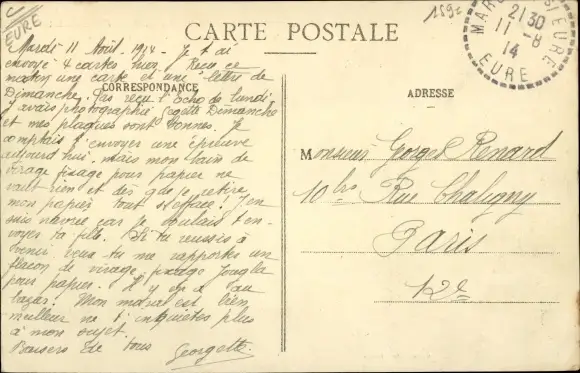 EURE
159c
CARTE POSTALE
MAR S/EURE
21 30
11 -8
14
EURE
Mardi 11 Août. 1914 - Je t'ai
envoyé 4 cartes hier. Reçu ce
matin une carte et une lettre de
Dimanche. Pas reçu l'Echo de lundi
CORRESPONDANCE
J'avais photographié Dimanche
et mes plaques sont bonnes. Je
comptais t'envoyer une épreuve
aujourd'hui, mais mon bain de
virage fixage pour papier ne
vaut rien et dès que je retire
mon papier tout s'efface! J'en
suis navrée car je voulais t'en-
voyer ta fille. Si tu réussis à
venir veux tu me rapporter un
flacon de virage fixage Jougla
pour papier. Il y en a au
bazar. Mon moral est bien
meilleur ne t'inquiètes plus
à mon sujet.
Baisers de tous
Georgette.
ADRESSE
Monsieur Georges Renard
10 bis Rue Chaligny
Paris
12e